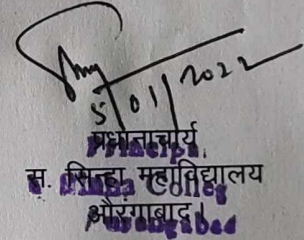 5/01/2022
प्रधानाचार्य
Principal
स. सिन्हा महाविद्यालय
Sinha College
औरंगाबाद।
Aurangabad